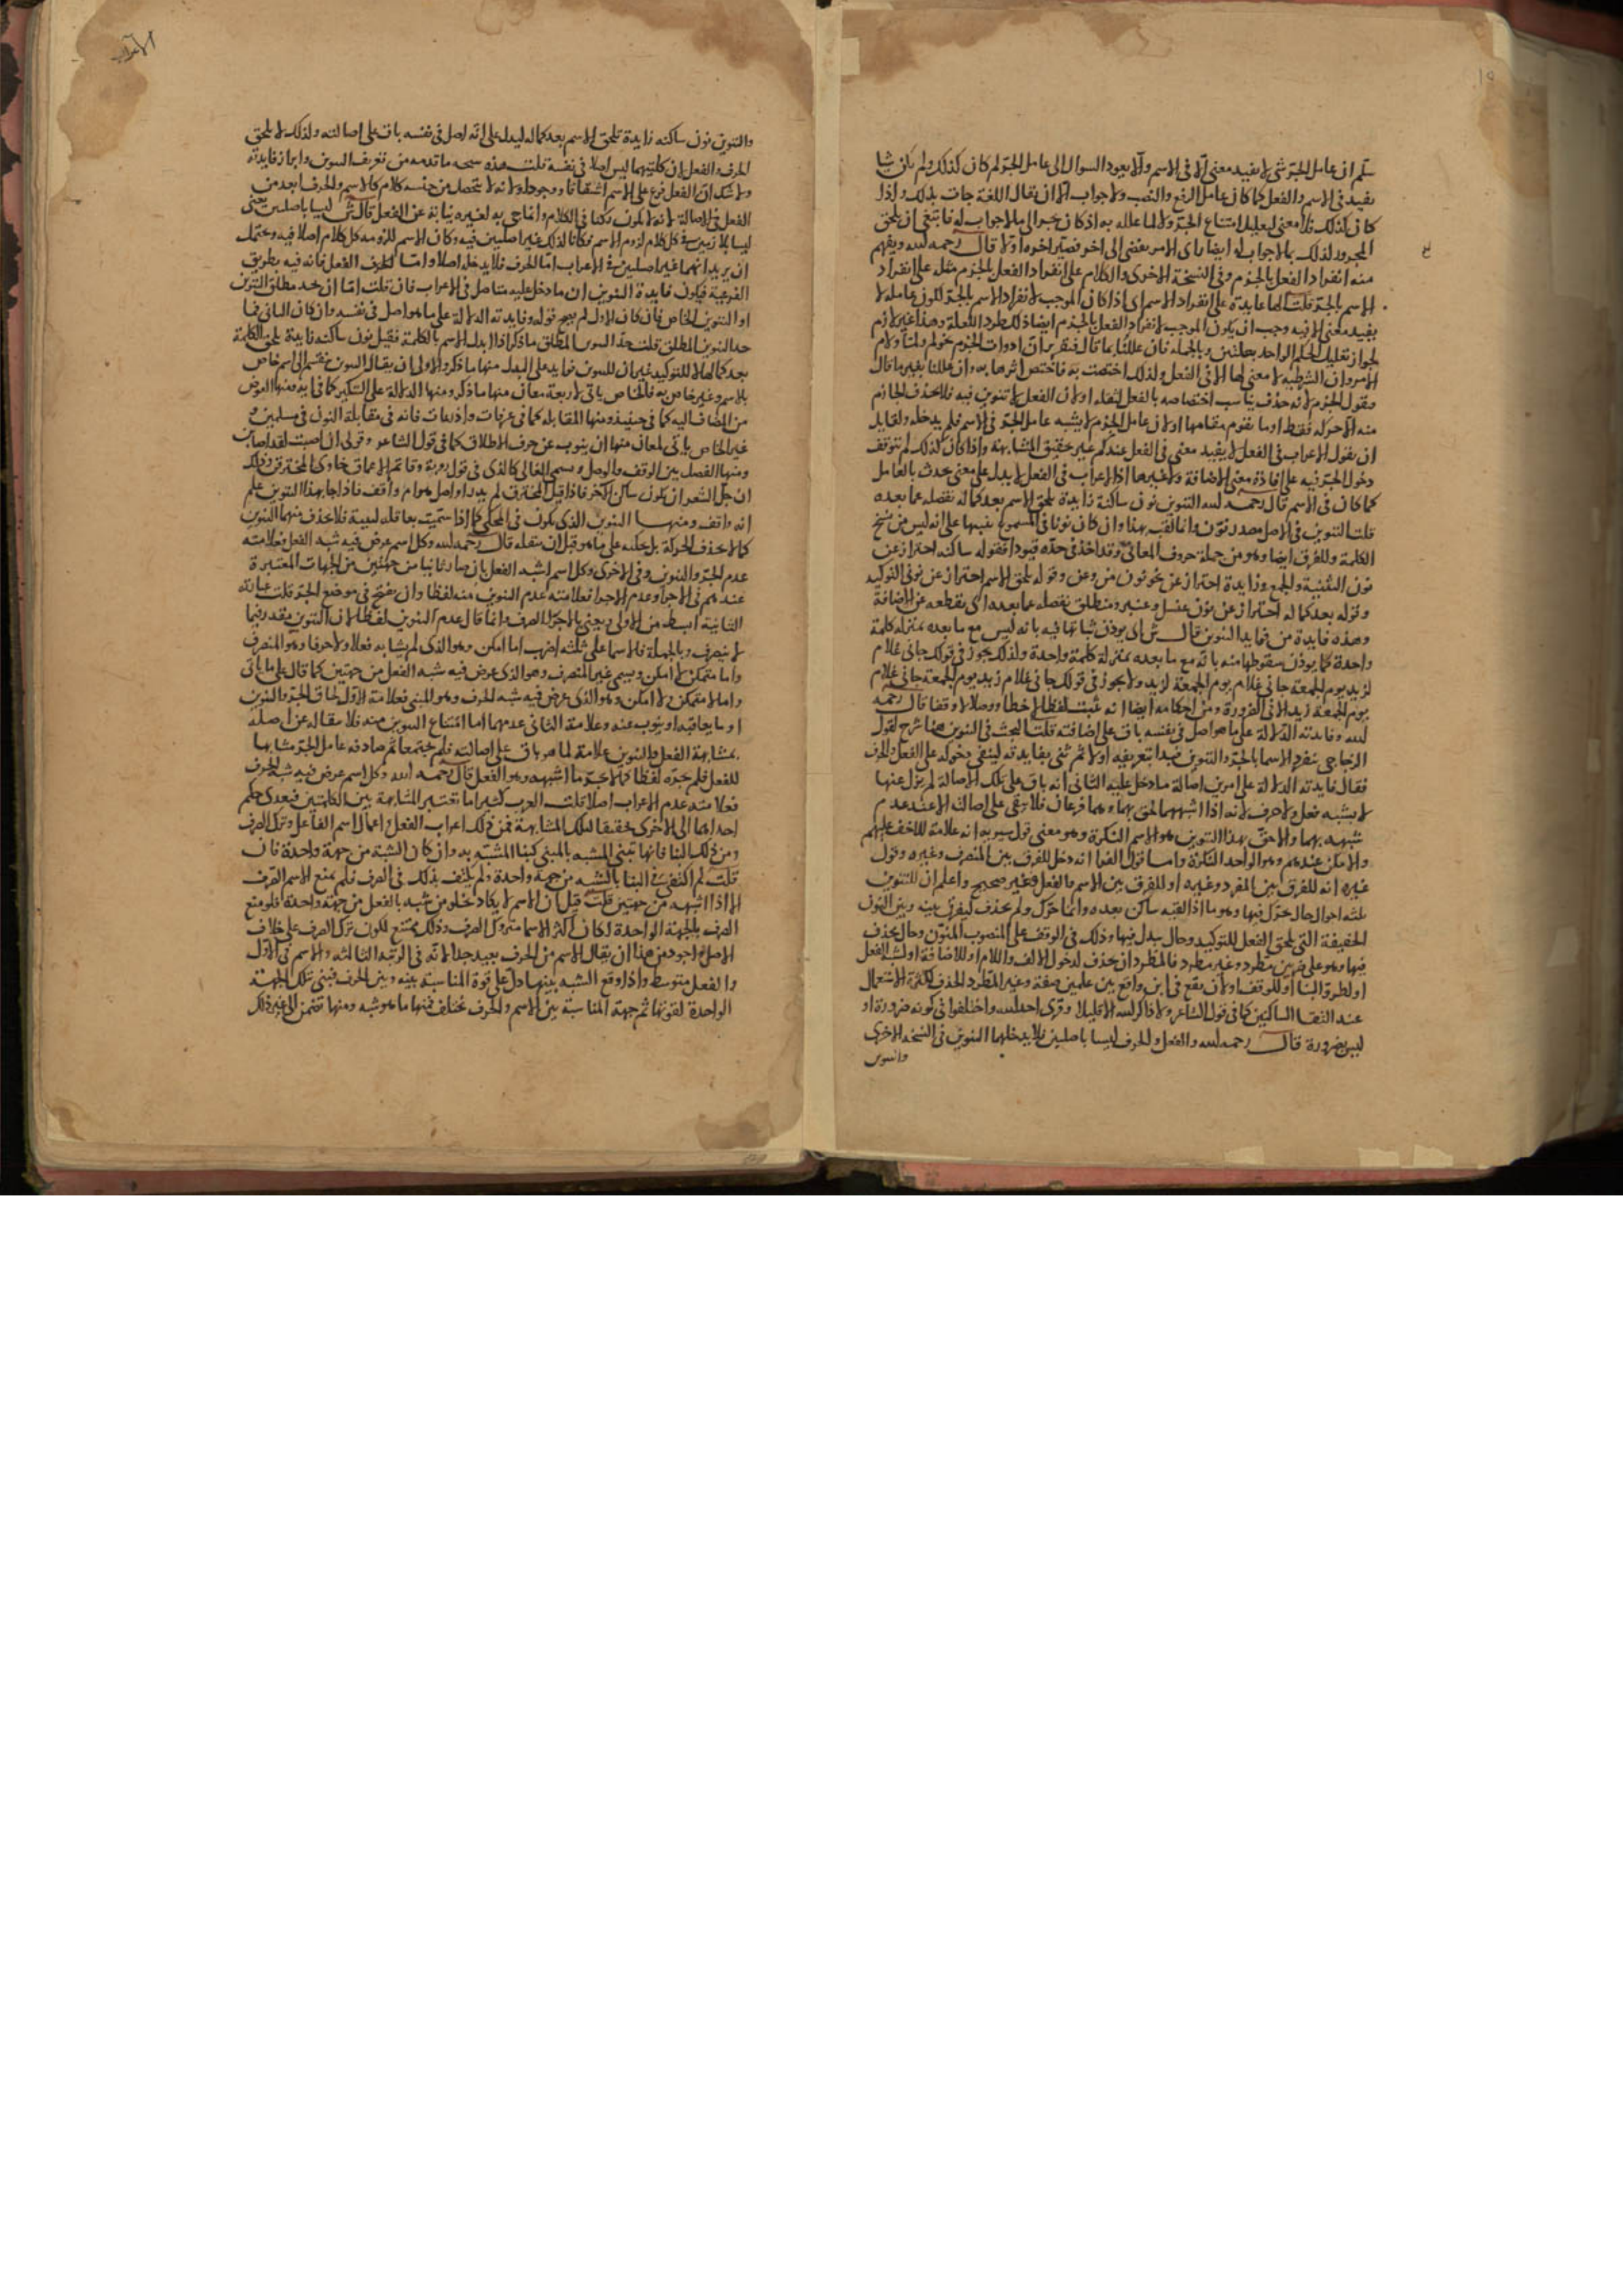 سلم ان عامل الجر شي لا يفيد معنى الا في الاسم والا يعود السوال الى عامل الجر لم كان كذلك ولم يكن شيا
يفيد في الاسم والفعل كما كان عامل الرفع والنصب ولا جواب الا ان يقال اللغة جات بذلك واذا
كان كذلك فلا معنى لتعليل امتناع الجر
المجرور لذلك بما لا جواب له ايضا راى الامر يفضي الى اخر فصير اخره اولا قال رحمه الله ويفهم
منه انفراد الفعل بالجزم وفي النسخة الاخرى والكلام على انفراد الفعل بالجزم مثله على انفراد
الاسم بالجر قلت الها عايدة على انفراد الاسم اى اذا كان الموجب لانفراد الاسم بالجر كون عامله لا
يفيد معنى الا فيه وجب ان يكون الموجب لانفراد الفعل بالجزم ايضا ذلك لطرد العلة وهذا غير لازم
لجواز تعليل الحكم الواحد بعلتين وبالجملة فان عللنا بما قال فتقريره ان ادوات الجزم نحو لم ولما ولام
الامر وان الشرطية لا معنى لها الا في الفعل ولذلك اختصت به فاختص اثرها به وان عللنا بغير ما قال
فنقول الجزم لانه حذف يناسب اختصاصه بالفعل لثقله او لان الفعل لا تنوين فيه فلا يحذف الجازم
منه الا حركة فقط او ما يقوم مقامها او لان عامل الجزم لا يشبه عامل الجر في الاسم فلم يدخله ولقايل
ان يقول الاعراب في الفعل لا يفيد معنى في الفعل عندكم غير تحقيق المشابهة واذا كان كذلك لم تتوقف
دخول الجر فيه على افادة معنى الاضافة ولا غيرها اذ الاعراب في الفعل لا يدل على معنى يحدث بالعامل
كما كان في الاسم قال رحمه الله التنوين نون ساكنة زايدة تلحق الاسم بعد كماله تفصله عما بعده
قلت التنوين في الاصل مصدر نون وانما لقب بهذا وان كان نونا في المسموع تنبيها على انه ليس من سنخ
الكلمة وللفرق ايضا وهو من جملة حروف المعاني وقد اخذ في حده قيودا فقوله ساكنة احتراز عن
نون التثنية والجمع وزايدة احتراز عن نحو نون من وعن وقوله تلحق الاسم احتراز عن نوني التوكيد
وقوله بعد كماله احتراز عن نون عنسل وعنبر ومنطلق تفصله عما بعده اى يقطعه عن الاضافة
وهذه فايدة من فوايد التنوين قال ش اى يوذن ثباتها فيه بانه ليس مع ما بعده بمنزلة كلمة
واحدة كما يوذن سقوطها منه بانه مع ما بعده بمنزلة كلمة واحدة ولذلك يجوز في قولك جاني غلام
لزيد يوم الجمعة جاني غلام يوم الجمعة لزيد ولا يجوز في قولك جاني غلام زيد يوم الجمعة جاني غلام
يوم الجمعة زيد الا في الضرورة ومن احكامه ايضا انه يثبت لفظا لا خطا ووصلا لا وقفا قال رحمه
الله وفايدته الدلالة على ما هو اصل في نفسه باق على اصالته قلت البحث في التنوين هنا شرح لقول
الزجاجي ينفرد الاسما بالجر والتنوين فبدا بتعريفه اولا ثم ثنى بفايدته لينفي دخوله على الفعل والحرف
فقال فايدته الدلالة على امرين اصالة ما دخل عليه الثاني انه باق على تلك الاصالة لم يزل عنها
لا يشبه فعلا ولا حرفا لانه اذا اشبههما الحق بهما وهما فرعان فلا يبقى على اصالته الا عند عدم
شبهه بهما والاحق بهذا التنوين هو الاسم النكرة وهو معنى قول سيبويه انه علامة للاخف عليهم
والامكن عندهم وهو الواحد النكرة واما قول الفرا انه دخل للفرق بين المنصرف وغيره وقول
غيره انه للفرق بين المفرد وغيره او للفرق بين الاسم والفعل فغير صحيح واعلم ان للتنوين
ثلثة احوال حال يحرك فيها وهو ما اذا لقيه ساكن بعده وانما حرك ولم يحذف ليفرق بينه وبين النون
الخفيفة التي تلحق الفعل للتوكيد وحال يبدل فيها وذلك في الوقف على المنصوب المنون وحال يحذف
فيها وهو على ضربين مطرد وغير مطرد فالمطرد ان يحذف لدخول الالف واللام او للاضافة او لشبه الفعل
او لطرو البنا او للوقف او لان يقع في ابن واقع بين علمين صفة وغير المطرد الحذف لكثرة الاستعمال
عند التقا الساكنين كما في قول الشاعر ولا ذاكر الله الا قليلا وقرئ احد الله واختلفوا في كونه ضرورة او
ليس بضرورة قال رحمه الله والفعل والحرف ليسا باصلين فلا يدخلهما التنوين في النسخة الاخرى
والتنوين
والتنوين نون ساكنة زايدة تلحق الاسم بعد كماله ليدل على انه اصل في نفسه باق على اصالته ولذلك لا يلحق
الحرف والفعل لان كلتيهما ليس اصلا في نفسه قلت هذه نتيجة ما قدمه من تعريف التنوين وابراز فايدته
ولا شك ان الفعل فرع على الاسم اشتقاقا ووجودا ولانه لا يتحصل من جنسه كلام كالاسم والحرف ابعد من
الفعل في الاصالة لانه لا يكون ركنا في الكلام وانما جي به لغيره نيابة عن الفعل قال ش ليسا باصلين يعني
ليسا بلازمين في كل كلام لزوم الاسم فكانا لذلك غير اصلين فيه وكان الاسم للزومه كل كلام اصلا فيه ويحتمل
ان يريد انهما غير اصلين في الاعراب اما الحرف فلا يدخله اصلا واما الفعل فانه فيه بطريق
الفرعية فيكون فايدة التنوين ان ما دخل عليه متاصل في الاعراب فان قلت اما ان يحد مطلق التنوين
او التنوين الخاص فان كان الاول لم يصح قوله وفايدته الدلالة على ما هو اصل في نفسه وان كان الثاني فما
حد التنوين المطلق قلت حد التنوين المطلق ما ذكر اذا ابدل الاسم بالكلمة فقيل نون ساكنة زايدة تلحق الكلمة
بعد كمالها لا للتوكيد غير ان للتنوين فوايد على البدل منها ما ذكر والاولى ان يقال التنوين ينقسم الى قسم خاص
بالاسم وغير خاص به فالخاص ياتي لاربعة معان منها ما ذكر ومنها الدلالة على التنكير كما في ايه ومنها العوض
من المضاف اليه كما في حينيذ ومنها المقابلة كما في عرفات واذرعات فانه في مقابلة النون في مسلمين
غير الخاص ياتي لمعان منها ان ينوب عن حرف الاطلاق كما في قول الشاعر وقولي ان اصبت لقد اصابن
ومنها الفصل بين الوقف والوصل وسمي الغالي كالذي في قول روبة وقاتم الاعماق خاوي المخترقن وذلك
ان جل الشعر ان يكون ساكن الاخر فاذا قيل المخترق لم يدر اواصل هو ام واقف فاذا جا بهذا التنوين علم
انه واقف ومنها التنوين الذي يكون في المحكي كما اذا سميته بعاقلة لبيبة فلا يحذف منهما التنوين
كما لا يحذف الحركة بل يحكيه على ما هو قبل ان تنقله قال رحمه الله وكل اسم عرض فيه شبه الفعل فعلامته
عدم الجر والتنوين وفي الاخرى وكل اسم اشبه الفعل بان صار ثانيا من جهتين من الجهات المعتبرة
عندهم في الاجرا وعدم الاجرا فعلامته عدم التنوين منه لفظا وان يفتح في موضع الجر قلت عبارته
الثانية ابسط من الاولى ويعني بالاجرا الصرف وانما قال عدم التنوين لفظا لان التنوين مقدر فيما
لا ينصرف وبالجملة فالاسما على ثلثة اضرب اما امكن وهو الذي لم يشابه فعلا ولا حرفا وهو المنصرف
واما متمكن لا امكن ويسمى غير المنصرف وهو الذي عرض فيه شبه الفعل من جهتين كما قال على ما ياتي
واما لا متمكن ولا امكن وهو الذي عرض فيه شبه الحرف وهو المبني فعلامة الاول لحاق الجر والتنوين
او ما يعاقبه او ينوب عنه وعلامة الثاني عدمهما اما امتناع التنوين منه فلانتقاله عن اصله
بمشابهة الفعل والتنوين علامة لما هو باق على اصالته فلم يجتمعا ثم صادفه عامل الجر مشابها
للفعل فلم يجره لفظا كما لا يجر ما اشبهه وهو الفعل قال رحمه الله وكل اسم عرض فيه شبه الحرف
فعلامته عدم الاعراب اصلا قلت العرب كثيرا ما تعتبر المشابهة بين الكلمتين فيعدى حكم
احداهما الى الاخرى تحقيقا لتلك المشابهة فمن ذلك اعراب الفعل واعمال اسم الفاعل وترك الصرف
ومن ذلك البنا فانها تبني المشبه بالمبني كبنا المشبه به وان كان الشبه من جهة واحدة فان
قلت لم اكتفي في البنا بالشبه من جهة واحدة ولم يكتف بذلك في الصرف فلم يمنع الاسم الصرف
الا اذا اشبهه من جهتين قلت قيل ان الاسم لا يكاد يخلو من شبه بالفعل من جهة واحدة فلو منع
الصرف بالجهة الواحدة لكان اكثر الاسما متروك الصرف وذلك ممتنع لكون ترك الصرف على خلاف
الاصل واجود من هذا ان يقال الاسم من الحرف بعيد جدا لانه في الرتبة الثالثة والاسم في الاول
والفعل متوسط واذا وقع الشبه بينهما دل على قوة المناسبة بينه وبين الحرف فبني بتلك الجهة
الواحدة لقوتها ثم جهة المناسبة بين الاسم والحرف تختلف فمنها ما هو شبه ومنها تضمن الى غير ذلك